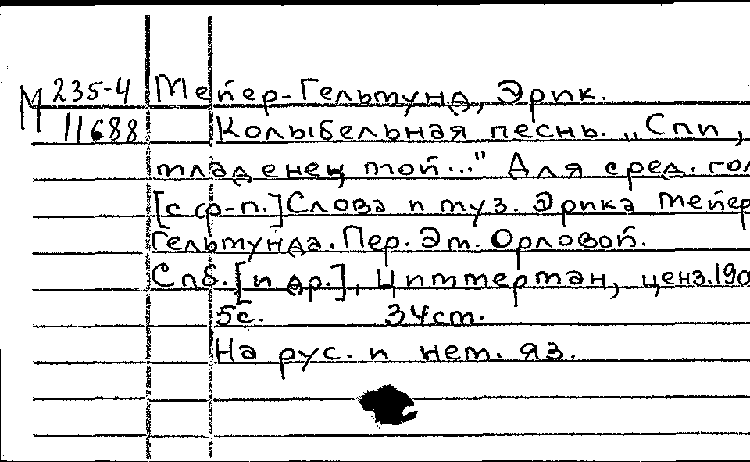 М 235-4 Мейер-Гельмунд, Эрик.
11688 Колыбельная песнь. „Спи,
младенец мой..." Для сред. гол
[с ф-п.] Слова и муз. Эрика Мейер
Гельмунда. Пер. Эм. Орловой.
Спб. [и др.], Циммерман, ценз. 190
5с. 34см.
На рус. и нем. яз.